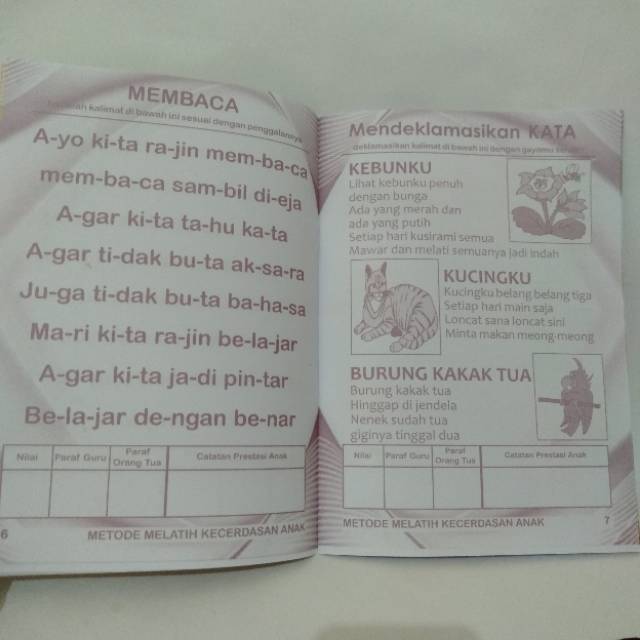 MEMBACA
kalimat di bawah ini sesuai dengan penggalannya
A-yo ki-ta ra-jin mem-ba-ca
mem-ba-ca sam-bil di-eja
A-gar ki-ta ta-hu ka-ta
A-gar ti-dak bu-ta ak-sa-ra
Ju-ga ti-dak bu-ta ba-ha-sa
Ma-ri ki-ta ra-jin be-la-jar
A-gar ki-ta ja-di pin-tar
Be-la-jar de-ngan be-nar
Nilai Paraf Guru Paraf Orang Tua Catatan Prestasi Anak
6 METODE MELATIH KECERDASAN ANAK
Mendeklamasikan KATA
deklamasikan kalimat di bawah ini dengan gayamu
KEBUNKU
Lihat kebunku penuh
dengan bunga
Ada yang merah dan
ada yang putih
Setiap hari kusirami semua
Mawar dan melati semuanya jadi indah
KUCINGKU
Kucingku belang belang tiga
Setiap hari main saja
Loncat sana loncat sini
Minta makan meong-meong
BURUNG KAKAK TUA
Burung kakak tua
Hinggap di jendela
Nenek sudah tua
giginya tinggal dua
Nilai Paraf Guru Paraf Orang Tua Catatan Prestasi Anak
METODE MELATIH KECERDASAN ANAK 7